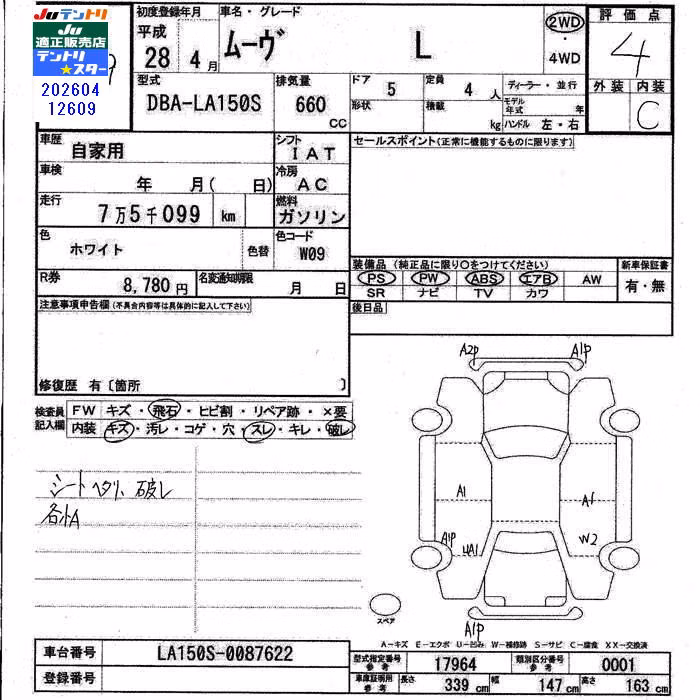 Juテントリ
JU
適正販売店
テントリ
★スター
202604
12609
初度登録年月
平成
28 4月
車名・グレード
ムーヴ L
2WD
・
4WD
評価点
4
外装 内装
C
型式
DBA-LA150S
排気量
660
CC
ドア 5 定員 4 人 ディーラー・並行
形状 積載 kg モデル年式 年
ハンドル 左・右
車歴
自家用
シフト
IAT
セールスポイント(正常に機能するものに限ります)
車検
年 月( 日)
冷房
AC
走行
7万5千099 km
燃料
ガソリン
色
ホワイト
色替
色コード
W09
装備品 (純正品に限り○をつけてください)
新車保証書
PS PW ABS エアB AW
SR ナビ TV カワ
有・無
R券
8,780円
名変通知期限
月 日
後日品
注意事項申告欄(不具合内容等は具体的に記入して下さい)
修復歴 有〔箇所 〕
検査員
記入欄
FW キズ・飛石・ヒビ割・リペア跡・×要
内装 キズ・汚レ・コゲ・穴・スレ・キレ・破レ
シートヘタリ、破レ
各小A
A2P A1P
A1 A1
A1P UA1 W2
A1P
スペア
A-キズ E-エクボ U-凹み W-補修跡 S-サビ C-腐食 XX-交換済
車台番号 LA150S-0087622
登録番号
型式指定番号
参考
17964
類別区分番号
参考
0001
車庫証明用
参考
長さ 339 cm 幅 147 cm 高さ 163 cm